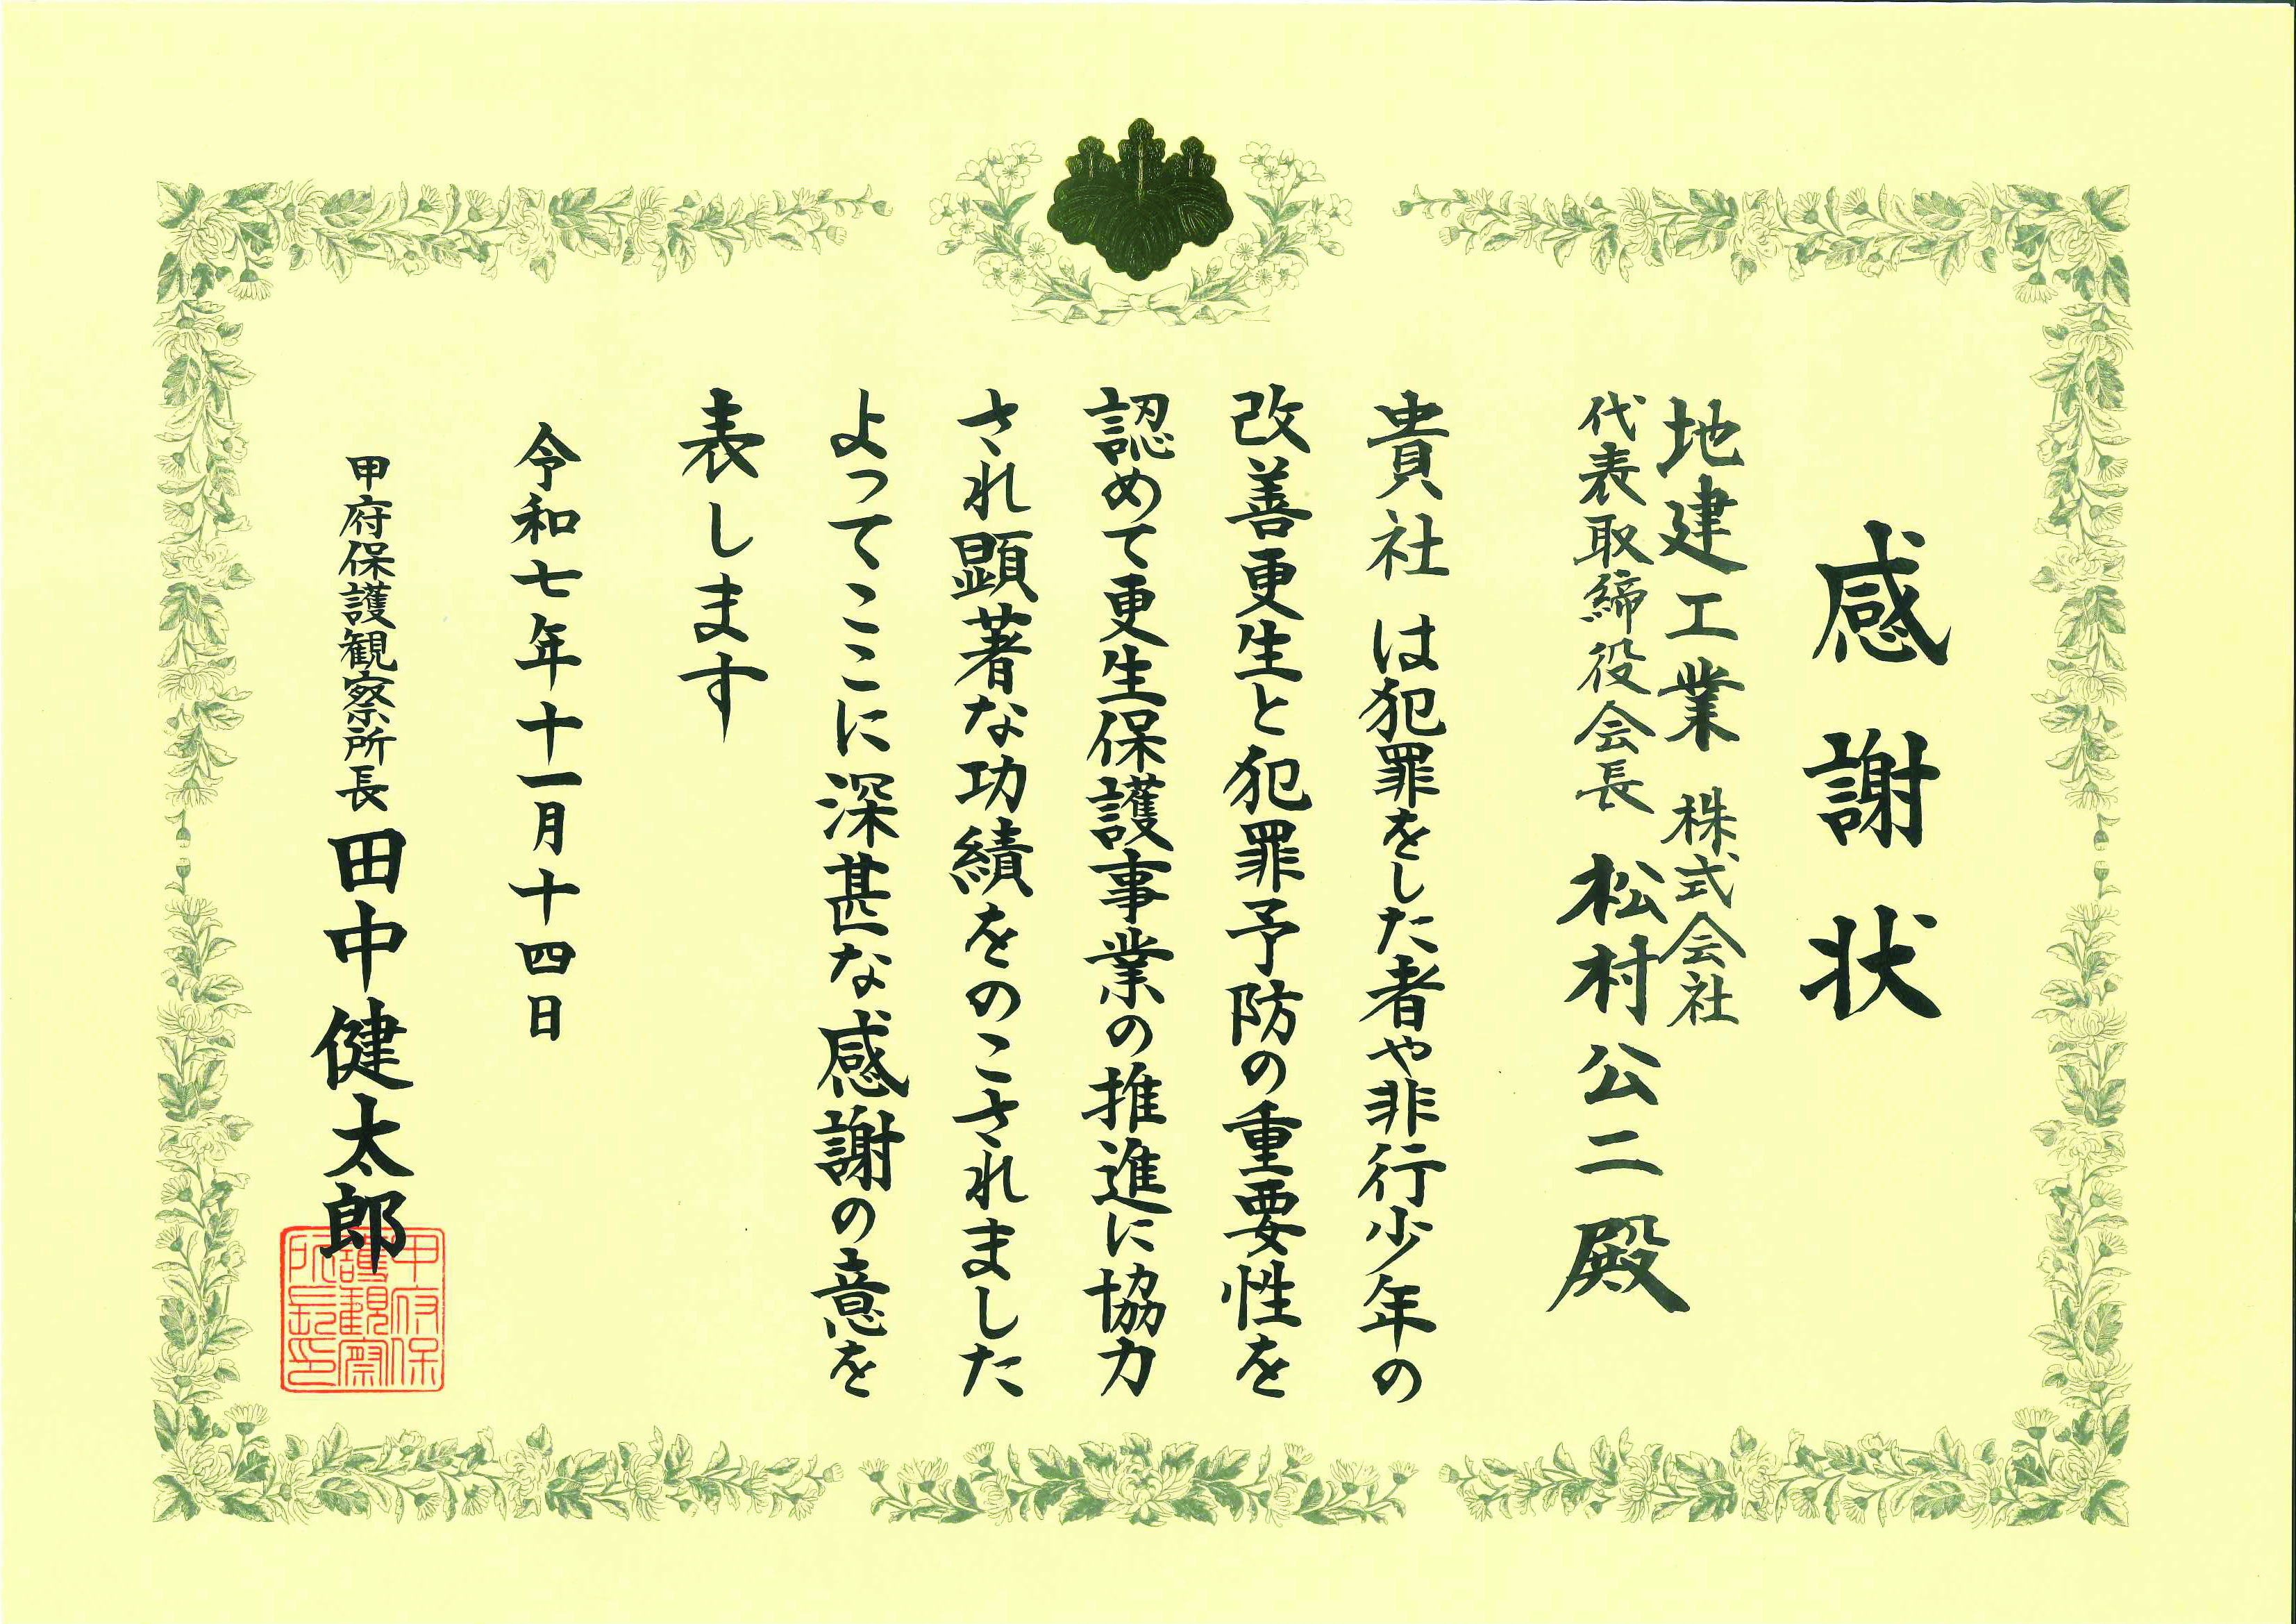 感謝状
地建工業 株式会社
代表取締役会長 松村公二殿
貴社 は犯罪をした者や非行少年の
改善更生と犯罪予防の重要性を
認めて更生保護事業の推進に協力
され顕著な功績をのこされました
よってここに深甚な感謝の意を
表します
令和七年十一月十四日
甲府保護観察所長 田中健太郎
甲府保
護観察
所長印